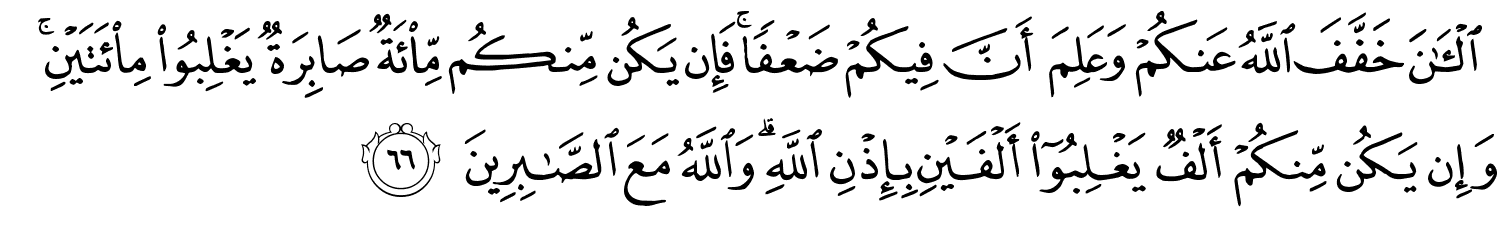 ٱلْـَٰٔنَ خَفَّفَ ٱللَّهُ عَنكُمْ وَعَلِمَ أَنَّ فِيكُمْ ضَعْفًا ۚ فَإِن يَكُن مِّنكُم مِّا۟ئَةٌ صَابِرَةٌ يَغْلِبُوا۟ مِا۟ئَتَيْنِ ۚ
وَإِن يَكُن مِّنكُمْ أَلْفٌ يَغْلِبُوٓا۟ أَلْفَيْنِ بِإِذْنِ ٱللَّهِ ۗ وَٱللَّهُ مَعَ ٱلصَّـٰبِرِينَ ٦٦